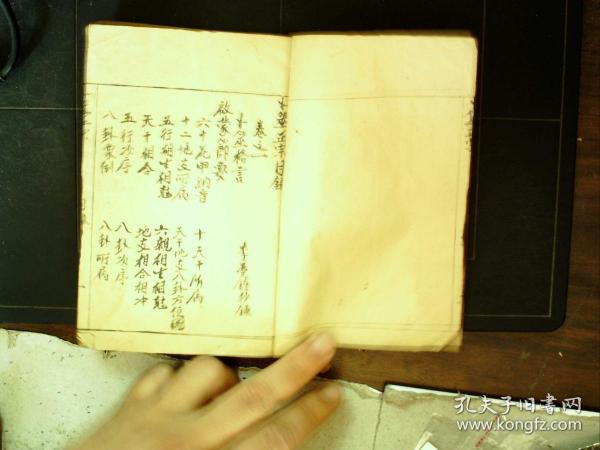 卜筮正宗目錄
卷之一
李夢齡抄錄
啟蒙節要
六十花甲納音
十天干所屬
十二地支所屬
天干地支八卦方位圖
五行相生相尅
六親相生相尅
天干相合
地支相合相冲
五行次序
八卦次序
八卦象例
八卦所屬
孔夫子旧書网
www.kongfz.com